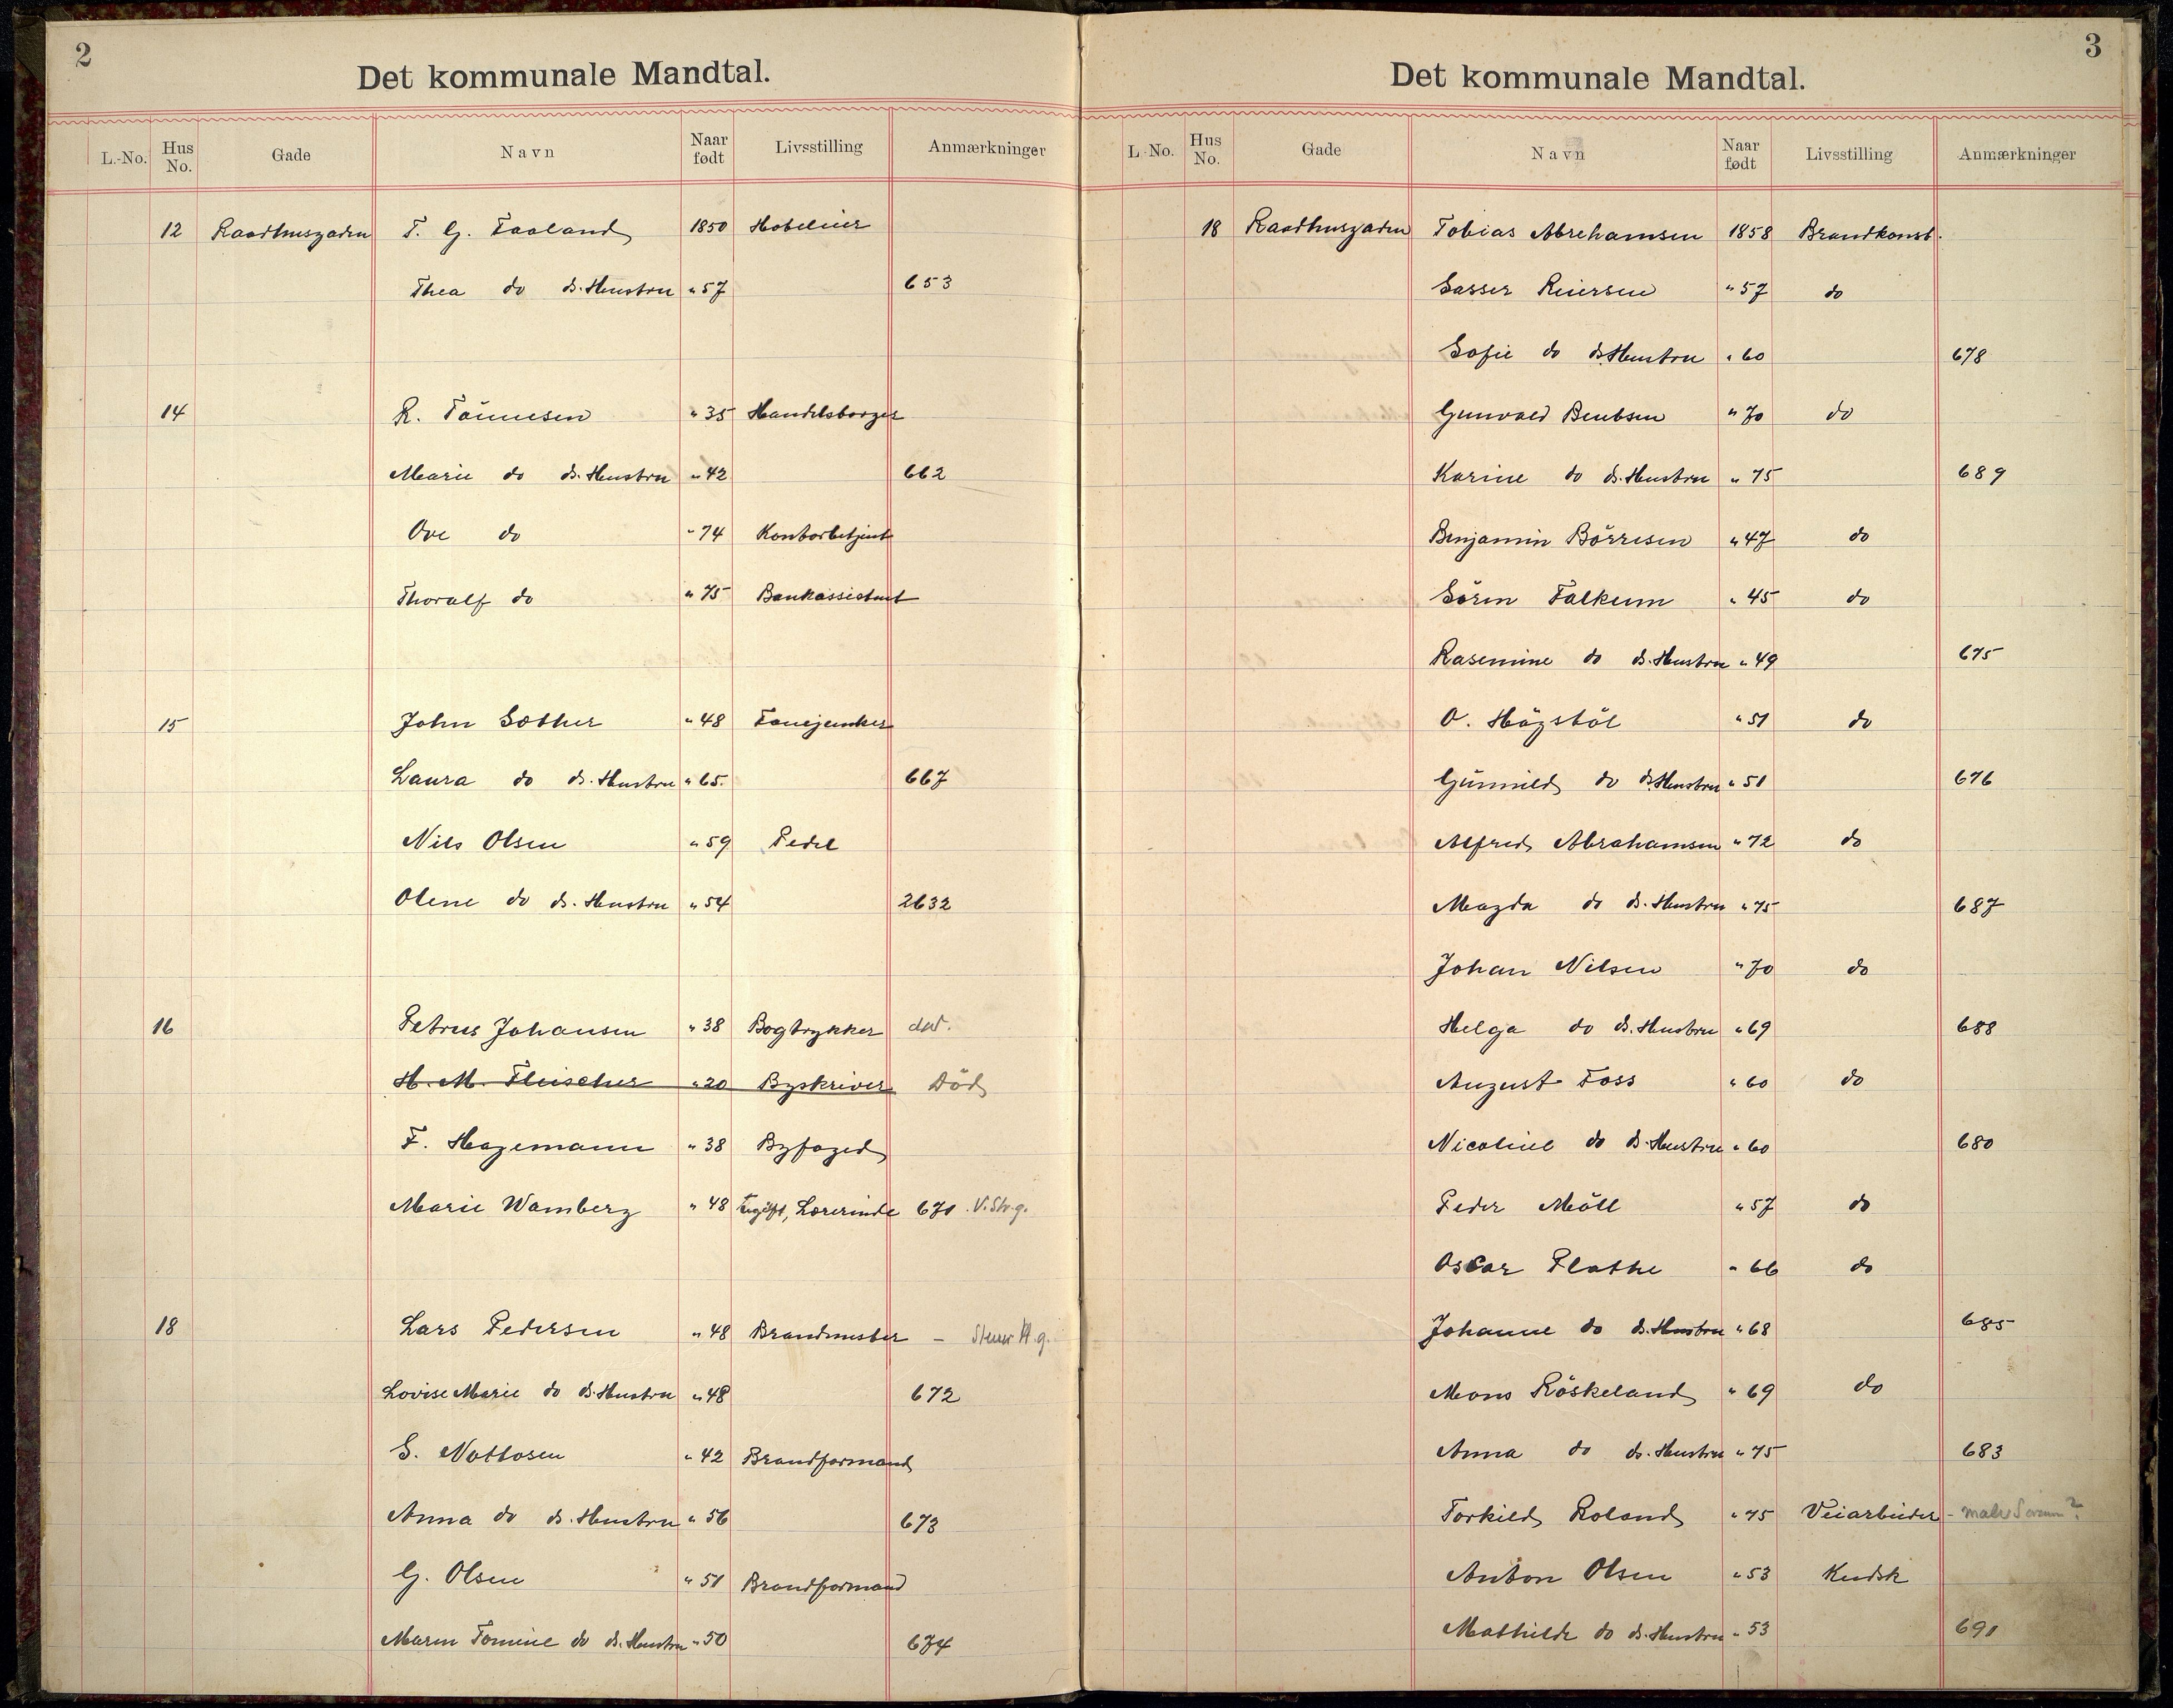 2
Det kommunale Mandtal.
L.-No. Hus No. Gade Navn Naar født Livsstilling Anmærkninger
12 Raadhusgaden T. G. Faaland 1850 Hoteleier
Thea do ds. Hustru " 57 653
14 R. Tönnesen " 35 Handelsborger
Marie do ds. Hustru " 42 662
Ove do " 74 Kontorbetjent
Thoralf do " 75 Bankassistent
15 John Sother " 48 Fanejunker
Laura do ds. Hustru " 65. 667
Nils Olsen " 59 Pedel
Olene do ds. Hustru " 54 2632
16 Petrus Johansen " 38 Bogtrykker død.
H. M. Fleischer " 20 Byskriver Död
F. Hagemann " 38 Byfoged
Marie Wamberg " 48 ugift, Lærerinde 671 V. Str. g.
18 Lars Pedersen " 48 Brandmester –
Lovise Marie do ds. Hustru " 48 672
S. Nottosen " 42 Brandformand
Anna do ds. Hustru " 56 673
G. Olsen " 51 Brandformand
Maren Tomine do ds. Hustru " 50 674
3
Det kommunale Mandtal.
L.-No. Hus No. Gade Navn Naar født Livsstilling Anmærkninger
18 Raadhusgaden Tobias Abrehamsen 1858 Brandkonst.
Sasser Reiersen " 57 do
Sofie do ds. Hustru " 60 678
Gunvald Bentsen " 70 do
Karine do ds. Hustru " 75 689
Benjamin Börresen " 47 do
Sören Falkum " 45 do
Rasemine do ds. Hustru " 49 675
O. Högstöl " 51 do
Gunnild do ds. Hustru " 51 676
Alfred Abrahamsen " 72 do
Magda do ds. Hustru " 75 687
Johan Nilsen " 70 do
Helga do ds. Hustru " 69 688
August Foss " 60 do
Nicoline do ds. Hustru " 60 680
Peder Möll " 57 do
Oscar Plathe " 66 do
Johanne do ds. Hustru " 68 685
Mons Röskeland " 69 do
Anna do ds. Hustru " 75 683
Torkild Roland " 75 Veiarbeider -
Anton Olsen " 53 Kudsk
Mathilde do ds. Hustru " 53 691